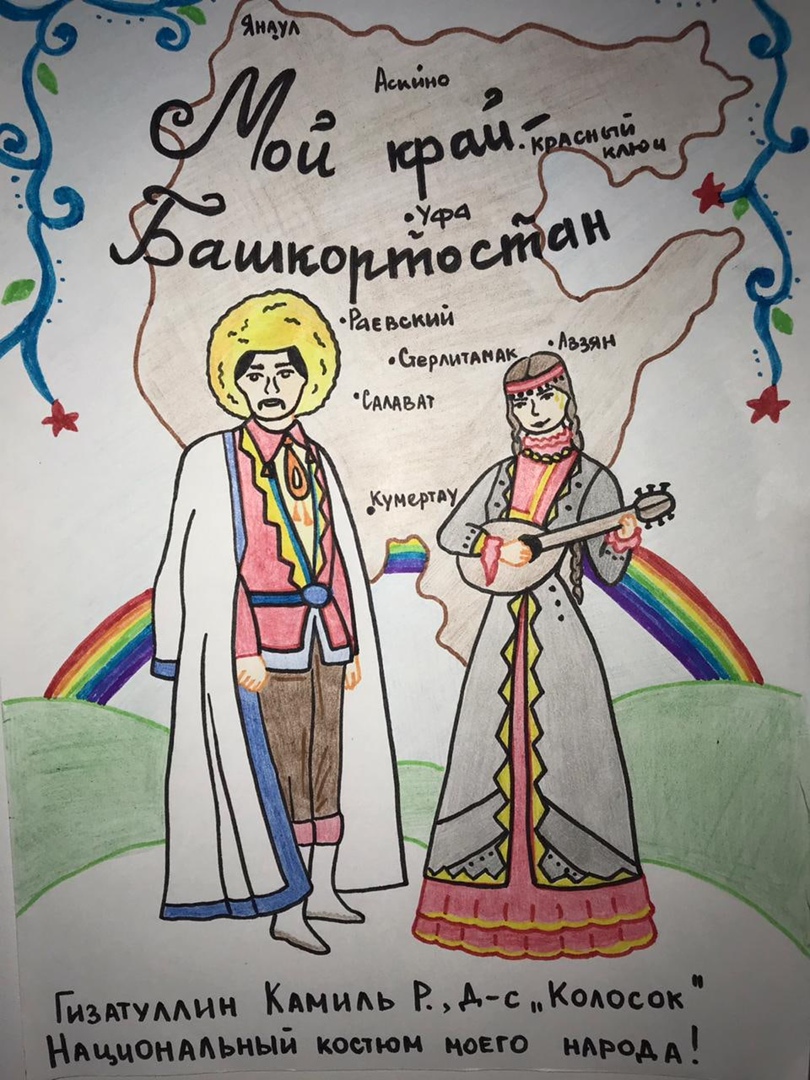 Янаул
Аскино
Мой край-
Красный
ключ
Уфа
Башкортостан
Раевский
Стерлитамак
Авзян
Салават
Кумертау
Гизатуллин Камиль Р., Д-с „Колосок"
Национальный костюм моего народа!